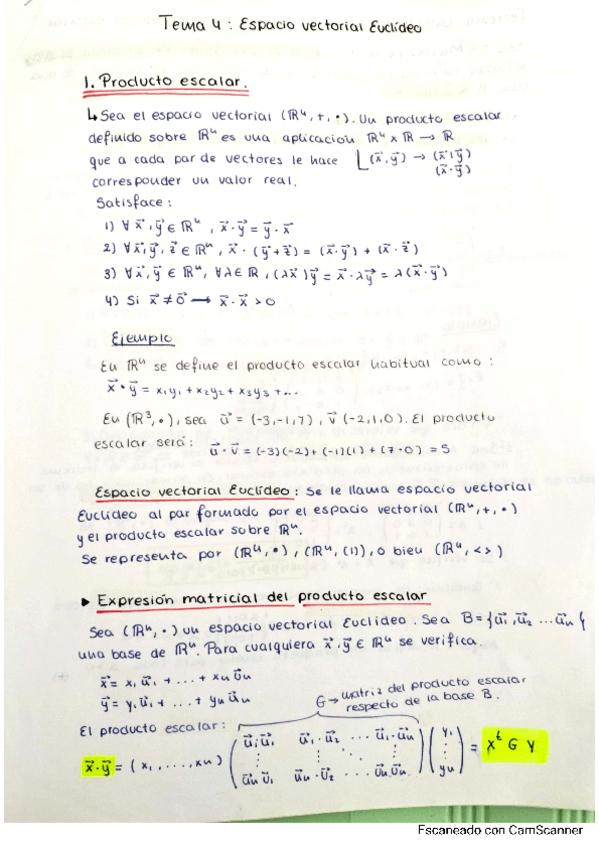 Tema 4 : Espacio vectorial Euclídeo
1. Producto escalar.
↳ Sea el espacio vectorial (ℝⁿ, +, •). Un producto escalar
definido sobre ℝⁿ es una aplicación ℝⁿ x ℝ → ℝ
que a cada par de vectores le hace (x⃗, y⃗) → (x⃗ | y⃗)
corresponder un valor real. (x⃗ · y⃗)
Satisface :
1) ∀ x⃗, y⃗ ∈ ℝⁿ , x⃗ · y⃗ = y⃗ · x⃗
2) ∀ x⃗, y⃗, z⃗ ∈ ℝⁿ, x⃗ · (y⃗ + z⃗) = (x⃗ · y⃗) + (x⃗ · z⃗)
3) ∀ x⃗, y⃗ ∈ ℝⁿ, ∀ λ ∈ ℝ, (λx⃗) y⃗ = x⃗ · λy⃗ = λ(x⃗ · y⃗)
4) Si x⃗ ≠ 0⃗ → x⃗ · x⃗ > 0
Ejemplo
En ℝⁿ se define el producto escalar habitual como :
x⃗ • y⃗ = x₁y₁ + x₂y₂ + x₃y₃ + ...
En (ℝ³, •), sea u⃗ = (-3,-1,7) , v⃗ (-2,1,0). El producto
escalar será : u⃗ · v⃗ = (-3)(-2)+(-1)(1)+(7·0) = 5
Espacio vectorial Euclídeo : Se le llama espacio vectorial
Euclídeo al par formado por el espacio vectorial (ℝⁿ, +, •)
y el producto escalar sobre ℝⁿ.
Se representa por (ℝⁿ, •) , (ℝⁿ, (|)) , o bien (ℝⁿ, < >)
▸ Expresión matricial del producto escalar
Sea (ℝⁿ, ·) un espacio vectorial Euclídeo. Sea B = {u⃗₁, u⃗₂ ... u⃗ₙ}
una base de ℝⁿ. Para cualquiera x⃗, y⃗ ∈ ℝⁿ se verifica.
x⃗ = x₁ u⃗₁ + ... + xₙ u⃗ₙ
y⃗ = y₁ u⃗₁ + ... + yₙ u⃗ₙ
G → matriz del producto escalar
respecto de la base B.
El producto escalar :
u⃗₁ u⃗₁ u⃗₁ · u⃗₂ ... u⃗₁ · u⃗ₙ y₁
x⃗ · y⃗ = (x₁, ..., xₙ) ⋮ ⋮ = xᵗ G Y
u⃗ₙ u⃗₁ u⃗ₙ · u⃗₂ ... u⃗ₙ u⃗ₙ yₙ
Escaneado con CamScanner